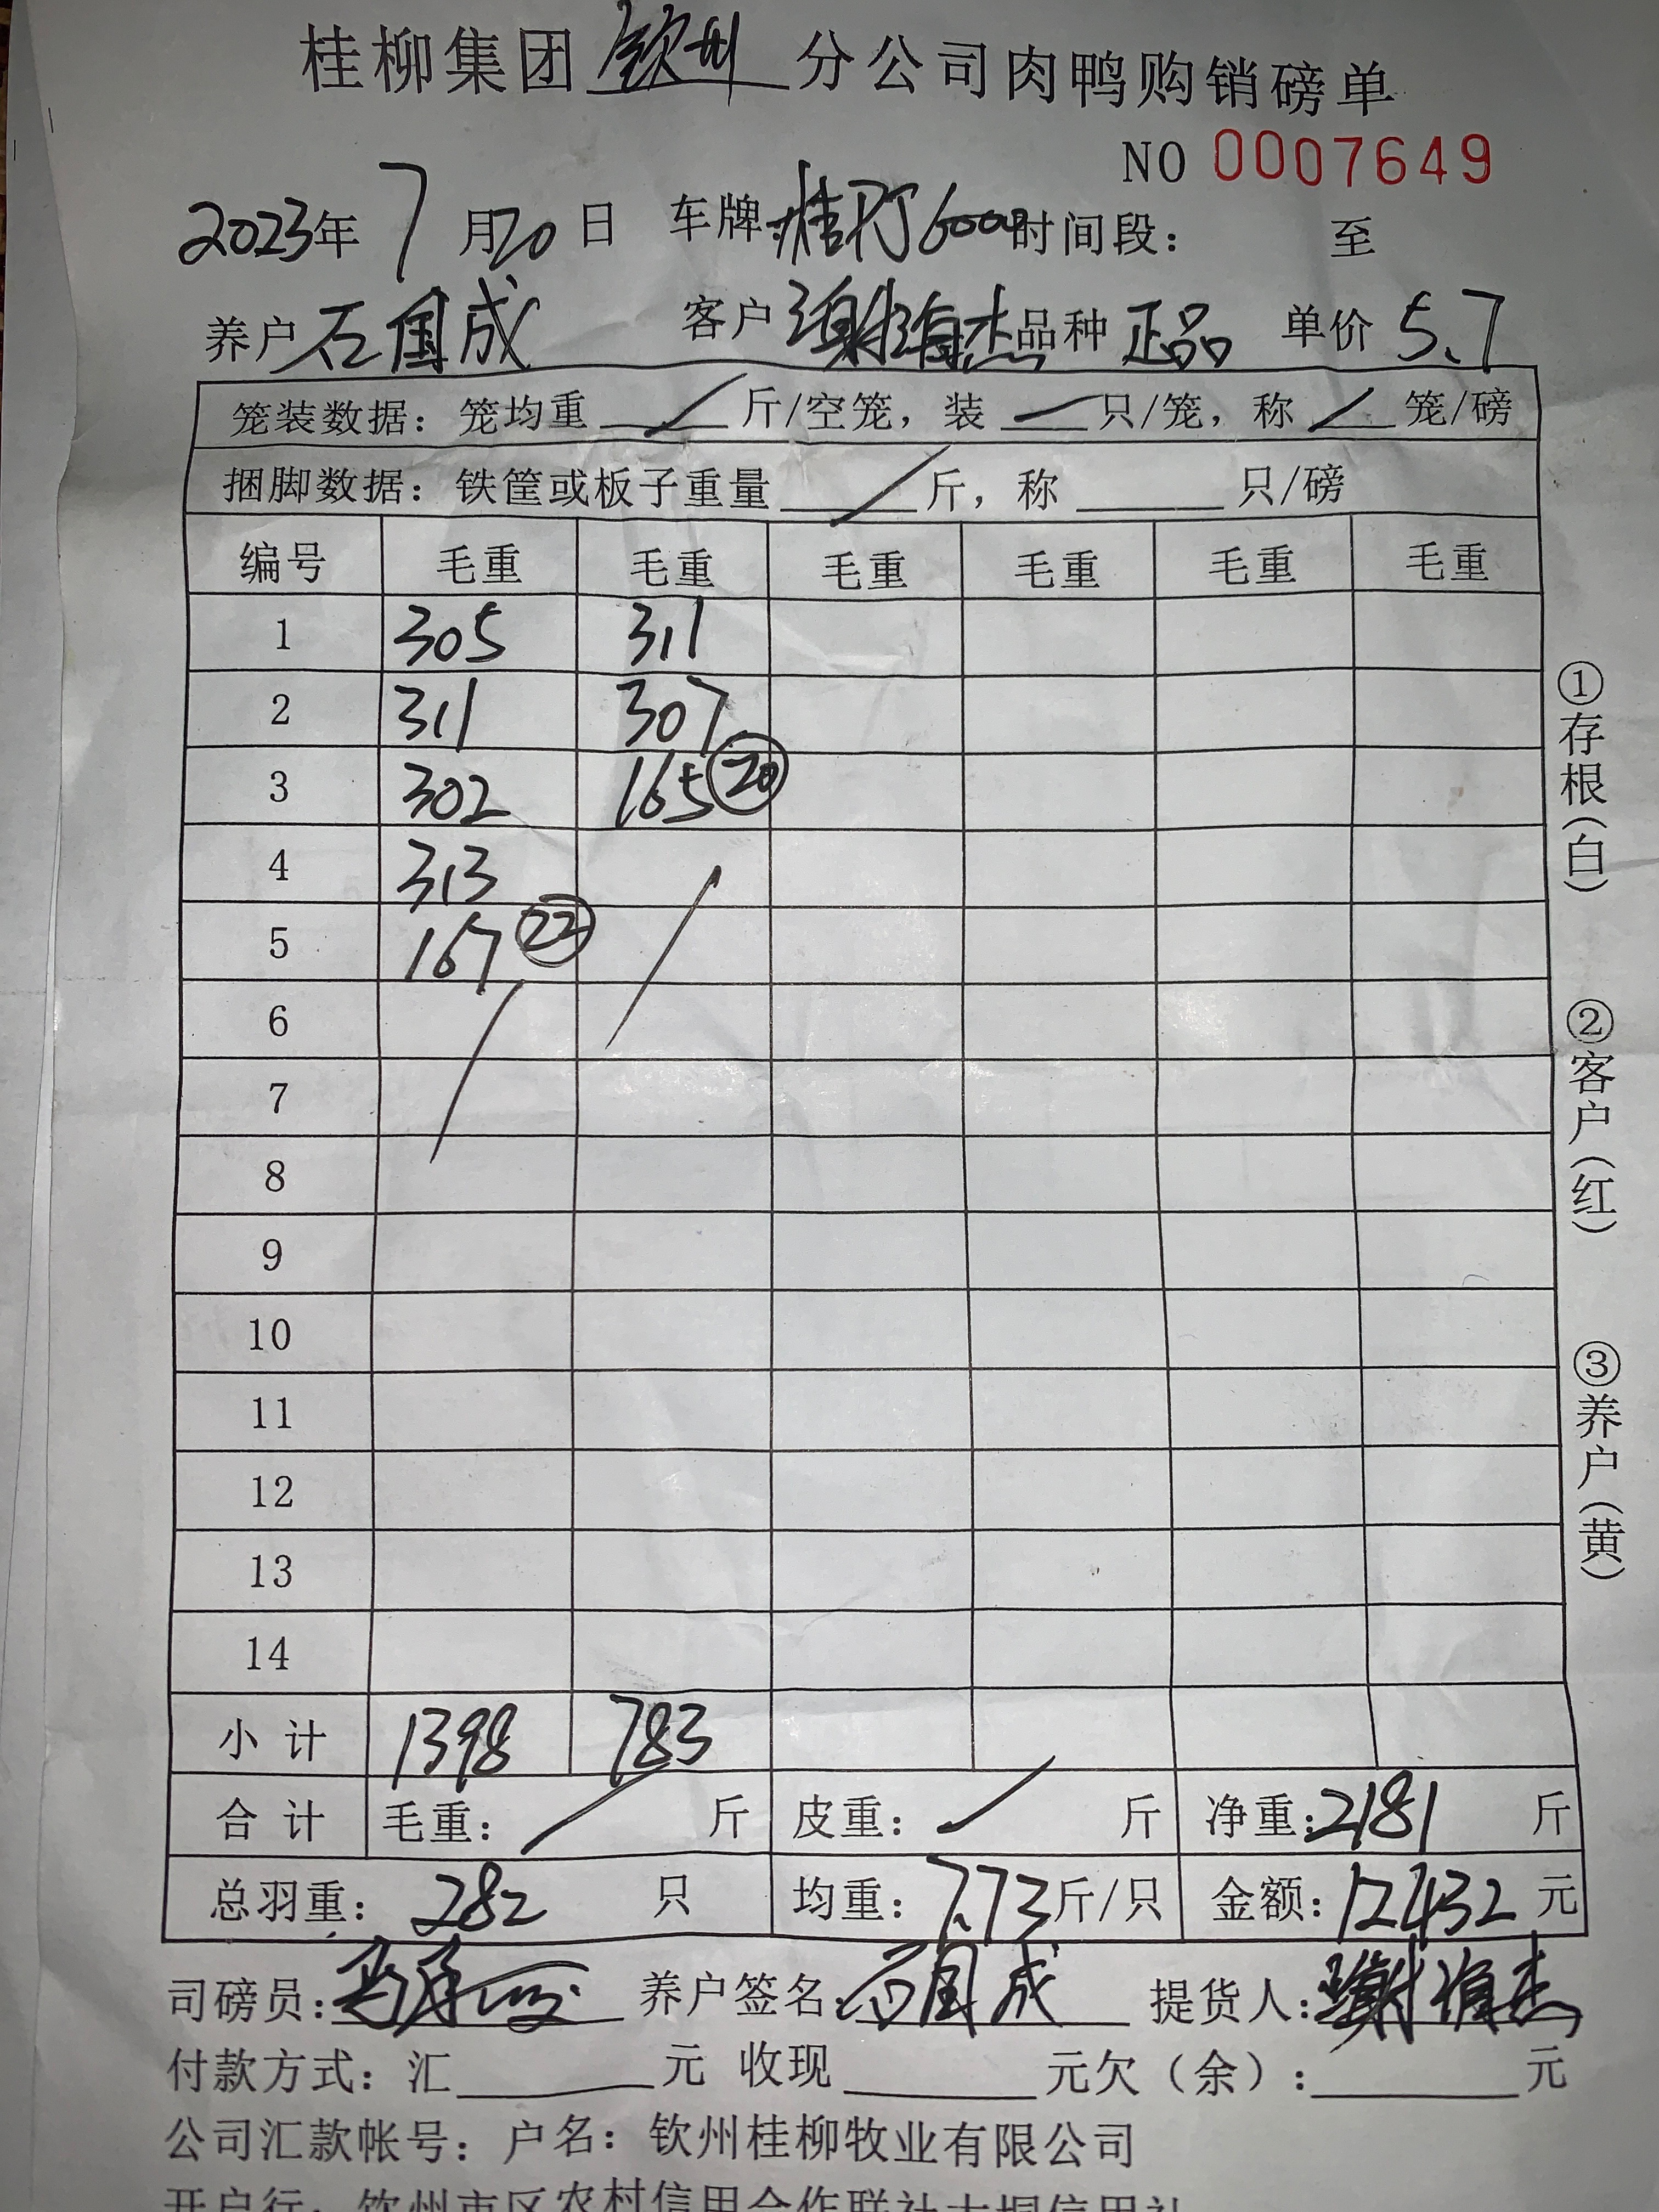 桂柳集团 钦州 分公司肉鸭购销磅单
NO 0007649
2023年 7 月20日 车牌: 时间段: 至
养户 石国成 客户 谢海杰 品种 正品 单价 5.7
笼装数据: 笼均重 / 斤/空笼, 装 / 只/笼, 称 / 笼/磅
捆脚数据: 铁筐或板子重量 / 斤, 称 只/磅
编号 毛重 毛重 毛重 毛重 毛重 毛重
1 305 311
2 311 307
3 302 165 ⑳
4 313
5 167 ㉒
6
7
8
9
10
11
12
13
14
小计 1398 783
合计 毛重: / 斤 皮重: / 斤 净重: 2181 斤
总羽重: 282 只 均重: 7.73 斤/只 金额: 12432 元
司磅员: 养户签名: 石国成 提货人: 谢海杰
付款方式: 汇 元 收现 元欠(余): 元
公司汇款帐号: 户名: 钦州桂柳牧业有限公司
开户行: 钦州市区农村信用合作联社大垌信用社
①存根(白)
②客户(红)
③养户(黄)